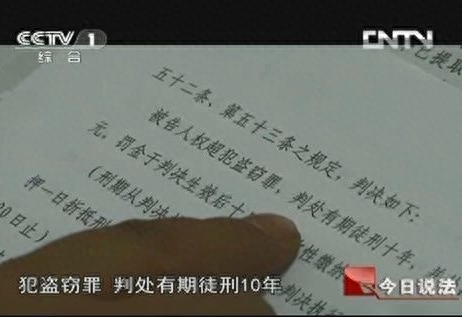 CCTV 1
综合
CNTN
已提取
五十二条、第五十三条之规定，判决如下：
被告人权超犯盗窃罪，判处有期徒刑十年，
元，罚金于判决生效后十
性缴纳
（刑期从判决
判决执行
押一日折抵刑
0日止）
犯盗窃罪 判处有期徒刑10年
今日说法